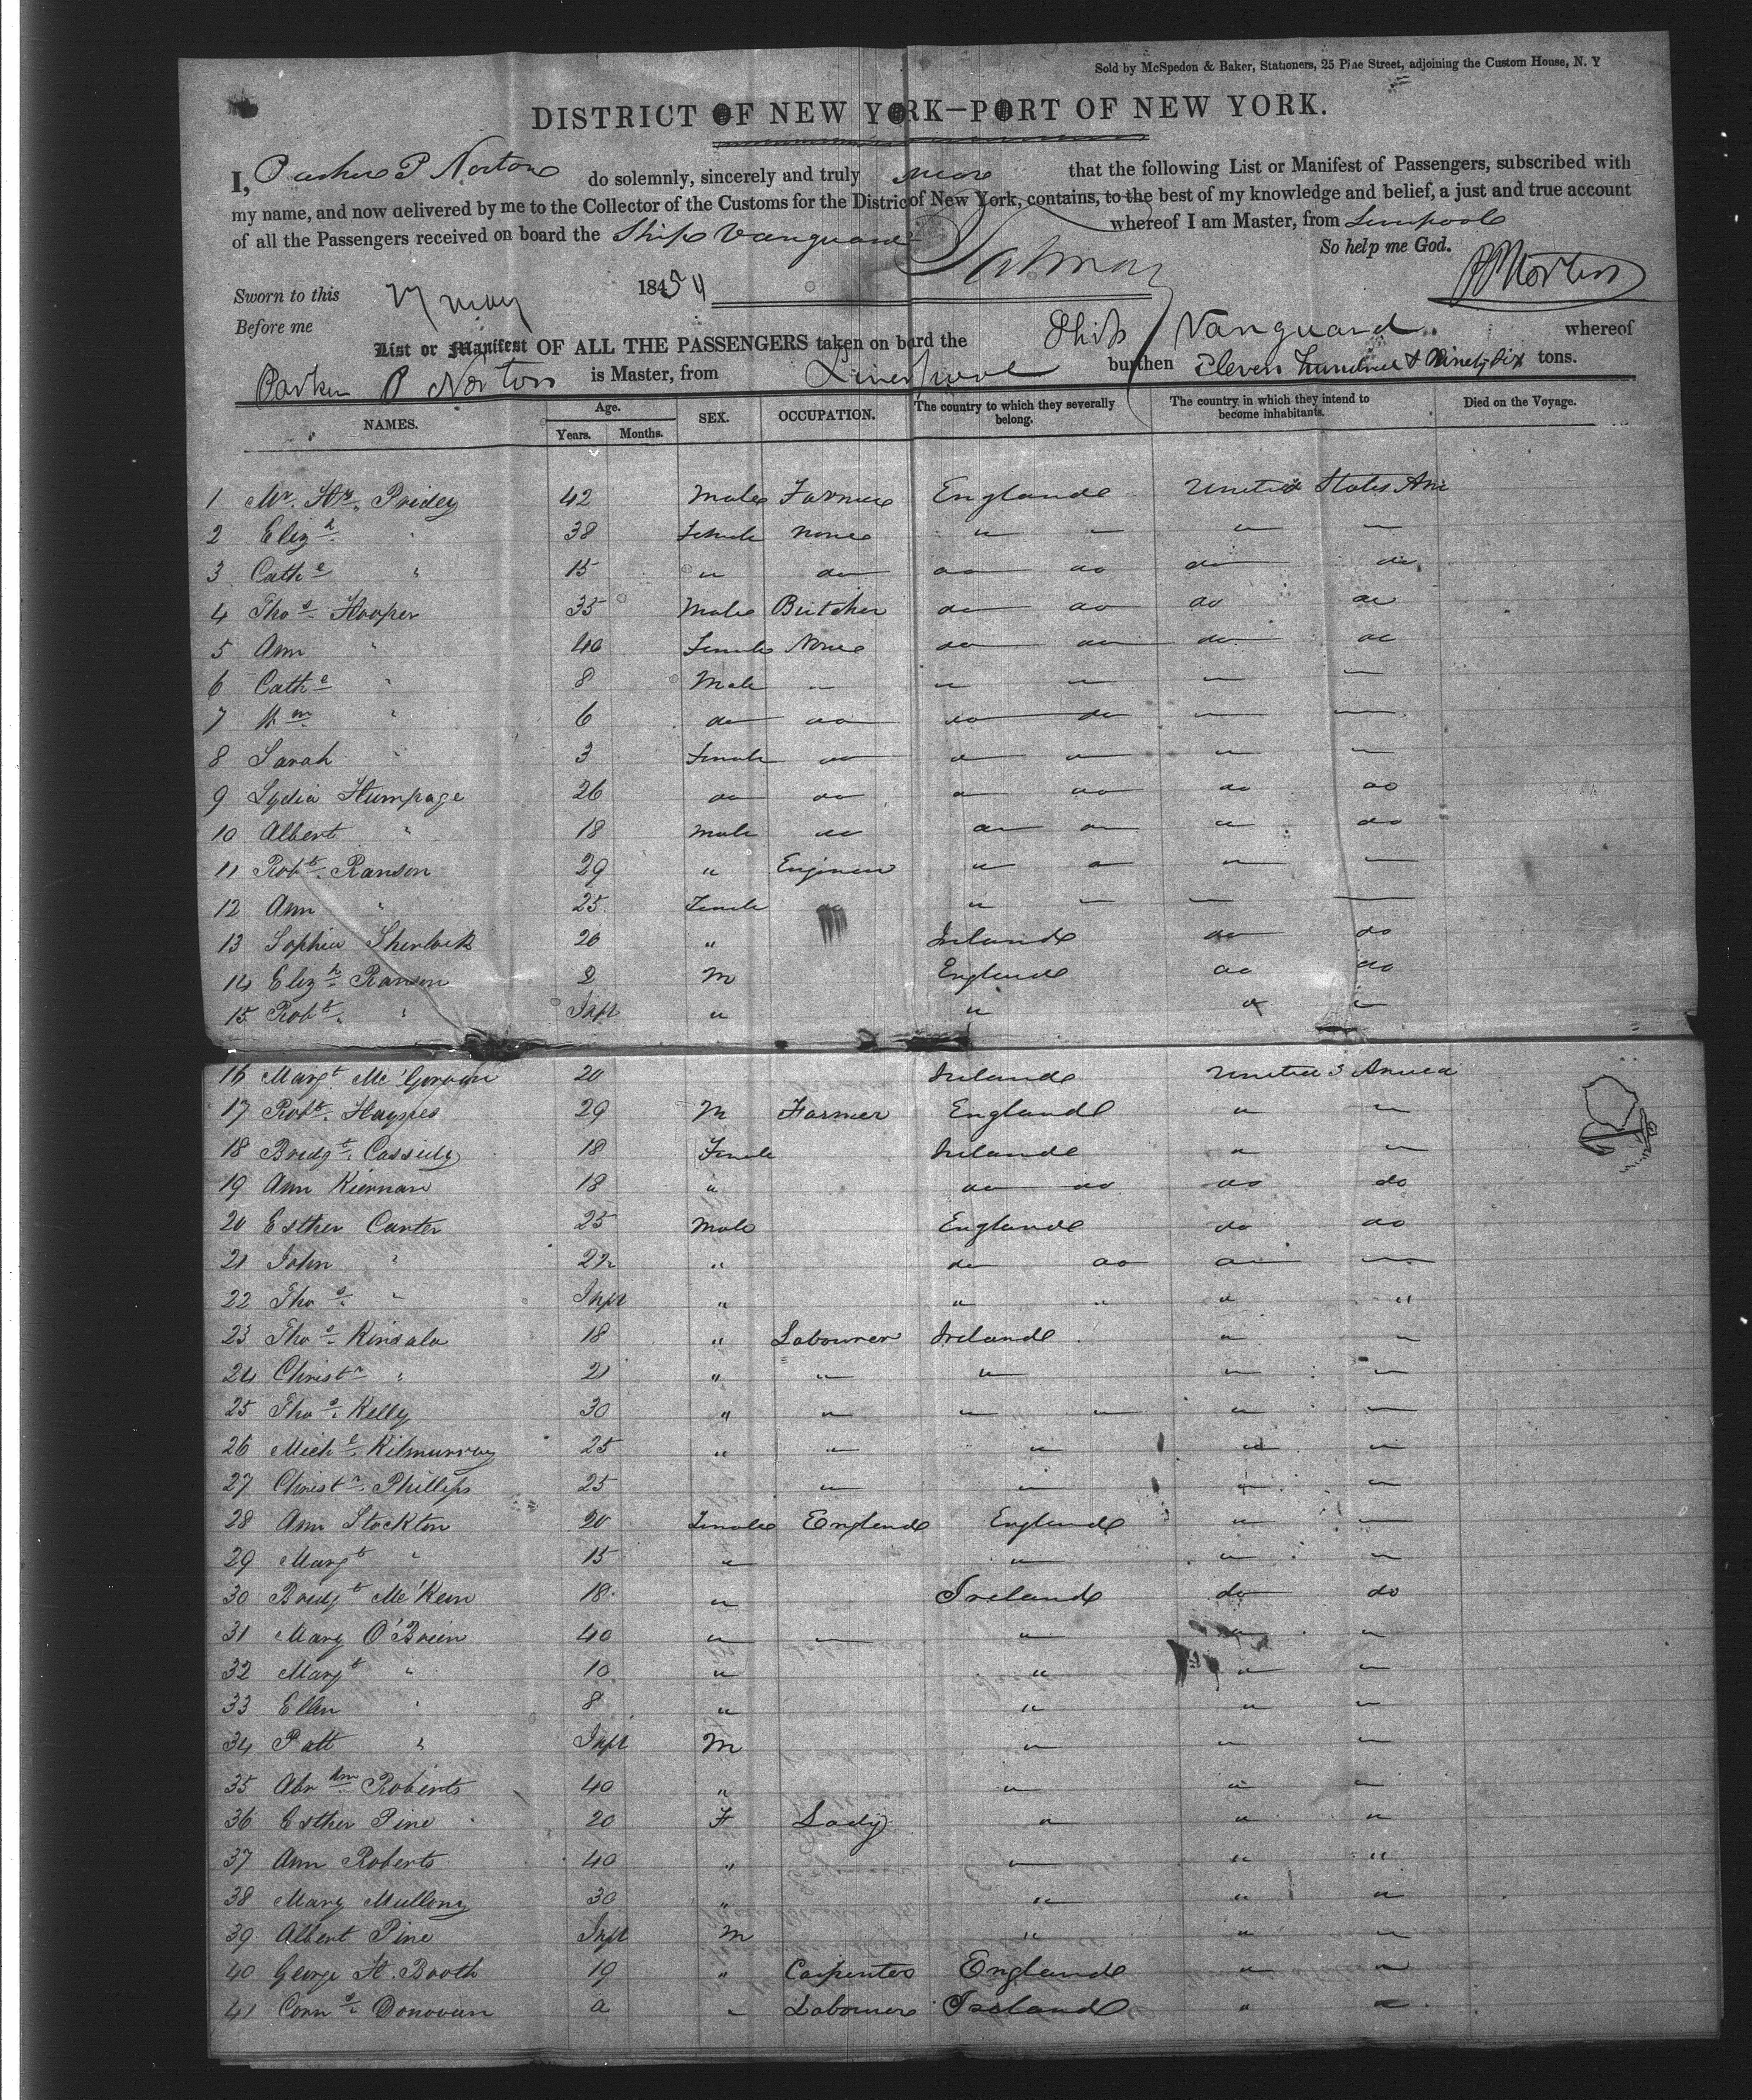 Sold by McSpedon & Baker, Stationers, 25 Pine Street, adjoining the Custom House, N. Y
DISTRICT OF NEW YORK—PORT OF NEW YORK.
I, Parker P Norton do solemnly, sincerely and truly swear that the following List or Manifest of Passengers, subscribed with
my name, and now delivered by me to the Collector of the Customs for the District of New York, contains, to the best of my knowledge and belief, a just and true account
of all the Passengers received on board the Ship Vanguard whereof I am Master, from Liverpool
So help me God.
Sworn to this 17 May 184 54 PP Norton
Before me
List or Manifest OF ALL THE PASSENGERS taken on bord the Ship Vanguard whereof
Parker P Norton is Master, from Liverpool burthen Eleven hundred & Ninety Six tons.
NAMES. Age. Years. Months. SEX. OCCUPATION. The country to which they severally belong. The country in which they intend to become inhabitants. Died on the Voyage.
1 Mr. Pridey 42 Male Farmer England United States Am
2 Elizh " 38 Female None " " " "
3 Cathe " 15 " do do do do do
4 Thos Hooper 35 Male Butcher do do do do
5 Ann " 40 Female None do do do do
6 Cathe " 8 Male " " " " "
7 Wm " 6 do do do do " "
8 Sarah " 3 Female do " " " "
9 Lydia Humpage 26 do do do do do do
10 Albert " 18 Male do do do " do
11 Robt. Ranson 29 " Engineer " " " "
12 Ann " 25 Female do " " " "
13 Sophia Sherlock 26 " Ireland do do
14 Elizh Ranson 2 M England do do
15 Robt. " Inft " " " "
16 Margt. Mc'Govern 20 Ireland United S America
17 Robt. Haynes 29 M Farmer England " "
18 Bridgt. Cassidy 18 Female Ireland " "
19 Ann Kiernan 18 " do do do do
20 Esther Carter 25 Male England do do
21 John " 22 " do do do "
22 Thos. " Inft " " " " "
23 Thos Kinsala 18 " Labourer Ireland " "
24 Christr " 21 " " " " "
25 Thos. Kelly 30 " " " " " "
26 Michl. Kilmurray 25 " " " " "
27 Christr. Phillips 25 " " " "
28 Ann Stockton 20 Female England England " "
29 Margt " 15 " " " "
30 Bridgt Mc'Keen 18 " Ireland do do
31 Mary O'Brien 40 " " " " "
32 Margt " 10 " " " "
33 Ellen " 8 " " " "
34 Patt " Inft M " " "
35 Abrhm Roberts 40 " " " "
36 Esther Pine 20 F Lady " " "
37 Ann Roberts 40 " " " "
38 Mary Mullony 30 " " " "
39 Albert Pine Inft M " " "
40 George H. Booth 19 " Carpenter England " "
41 Corns. Donovan a " Labourer Ireland " "